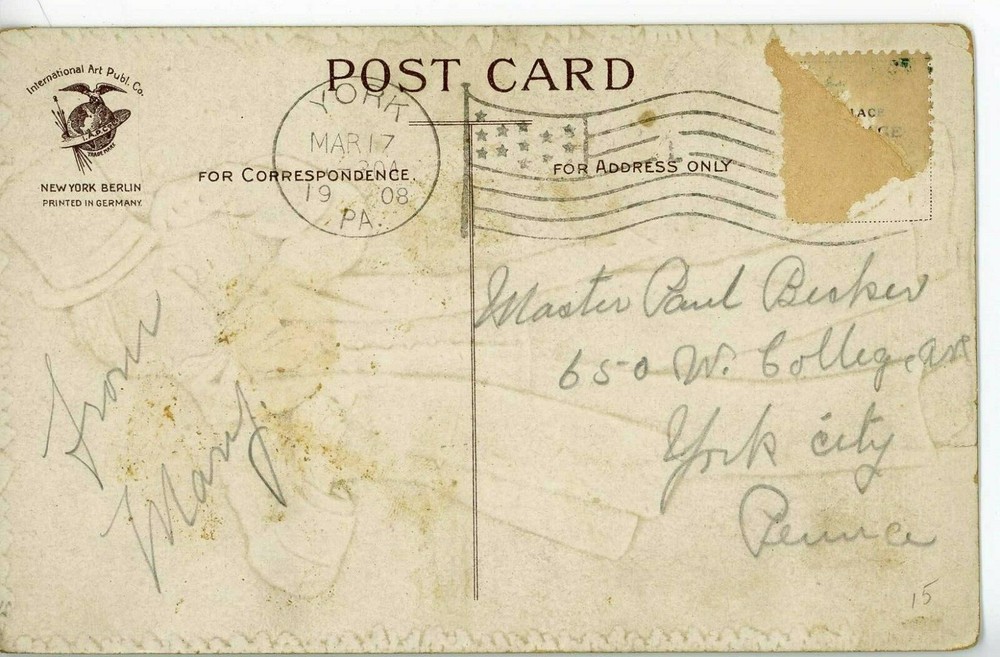 POST CARD
International Art Publ. Co.
I.A.P.CO.
TRADE MARK
NEW YORK BERLIN
PRINTED IN GERMANY.
YORK
MAR 17
19 08
PA.
FOR CORRESPONDENCE.
FOR ADDRESS ONLY
From
Mary.
Master Paul Becker
650 W. College Ave
York city
Penna
15